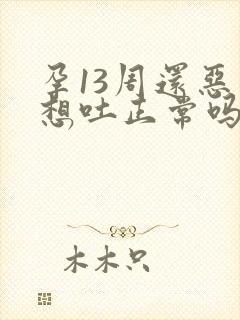 孕13周還惡
想吐正常吗
木木只